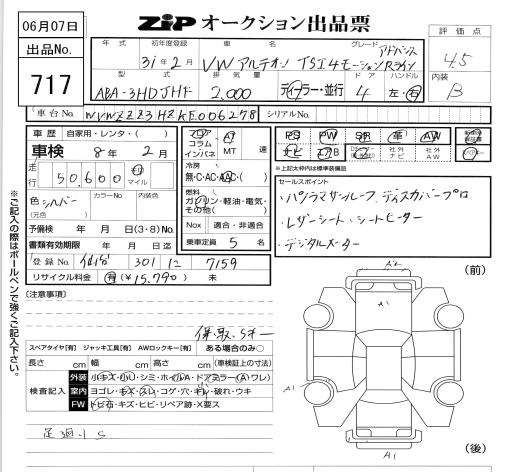 06月07日
ZIP オークション出品票
出品No.
717
年式 初年度登録 車名 グレード
31年2月 VW アルテオン TSI 4モーション Rライン アドバンス
型式 排気量 ドア ハンドル
ABA-3HDJHF 2,000 ディーラー・並行 4 左・右
評価点
4.5
内装
B
車台No. WVWZZZ3HZKE006278 シリアルNo.
車歴 自家用・レンタ・( )
車検 8年2月
走行 50,600 km マイル
色 シルバー カラーNo 内装色
(元色)
予備検 年 月 日 (3・8) No.
書類有効期限 年 月 日迄
登録No. 301 に 7159
リサイクル料金 有 (¥15,790) 未
フロア コラム インパネ
AT MT 速
冷房 無・C・AC・AAC・( )
燃料 ガソリン・軽油・電気・その他( )
Nox 適合・非適合
乗車定員 5 名
PS PW SR 革 AW
ナビ エアB 社外ナビ 社外AW
★上記太枠内は標準装備品
セールスポイント
・パノラマサンルーフ、ディスカバープロ
・レザーシート、シートヒーター
・デジタルメーター
※ご記入の際はボールペンで強くご記入下さい。
[注意事項]
スペアタイヤ[有] ジャッキ工具[有] AWロックキー[有] ある場合のみ○
長さ cm 幅 cm 高さ cm (車検証上の寸法)
検査記入
外装 小キズ・小U・シミ・ホイルA・ドアミラー(A)ワレ)
室内 ヨゴレ・キズ・スレ・コゲ・穴・キレ・破れ・ウキ
FW トビ石・キズ・ヒビ・リペア跡・X要ス
足廻りS
(前)
A2
A1
A1
A1
(後)